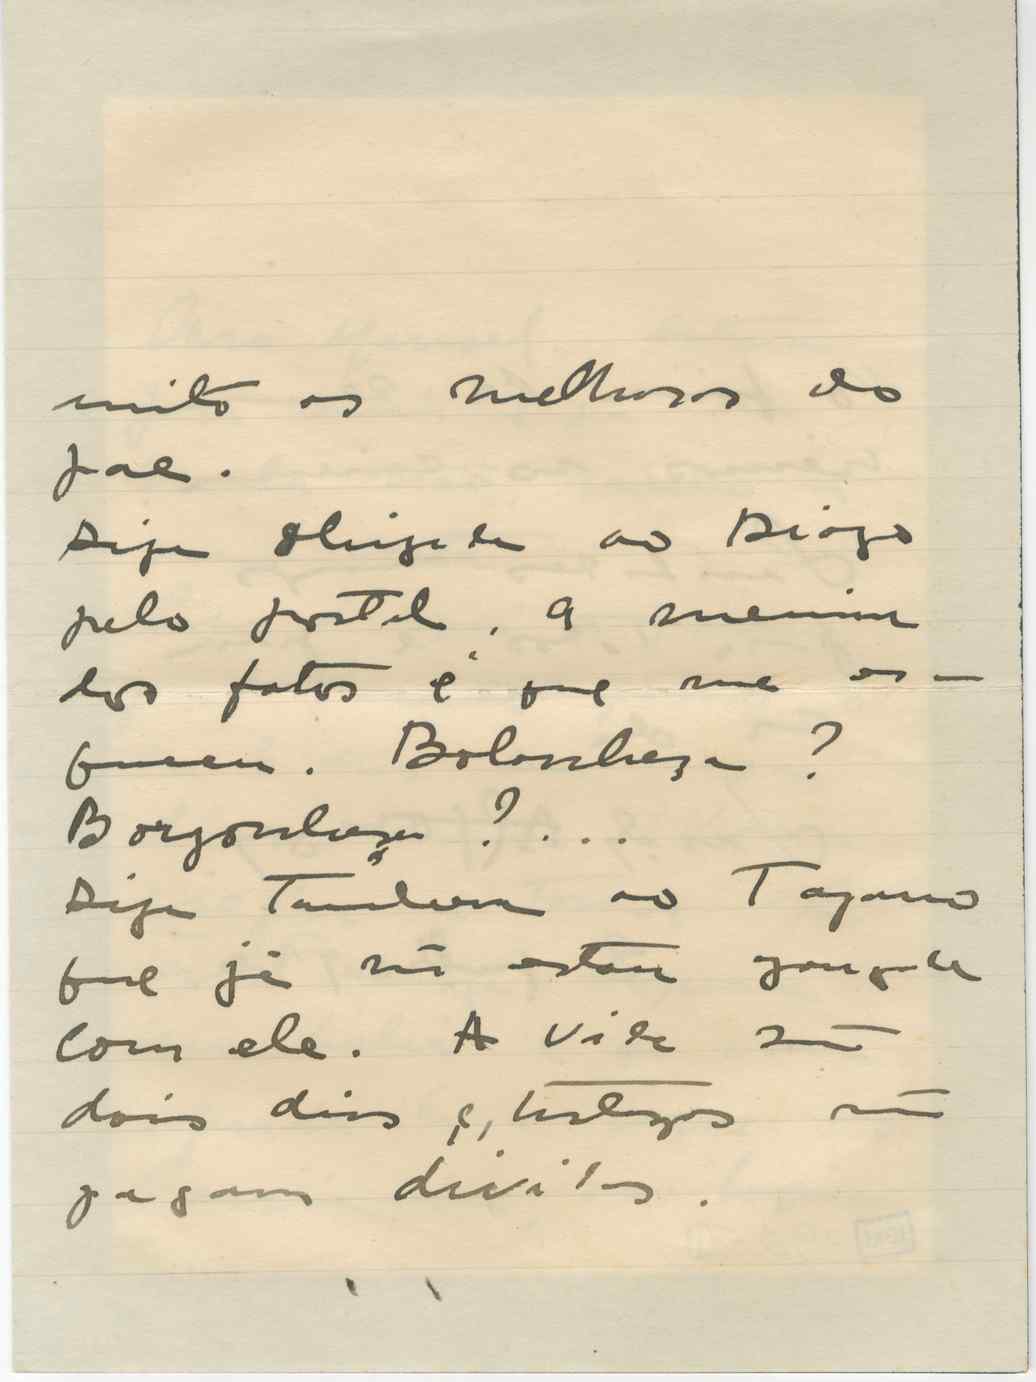 muito as melhoras do
pae.
Diga obrigada ao Diogo
pelo postal. A menina
dos fatos é que me es-
queceu. Bolonheza?
Borgonheza?...
Diga tambem ao Tagano
que já não estou zangada
com ele. A vida são
dois dias e, tristezas não
pagam dividas.